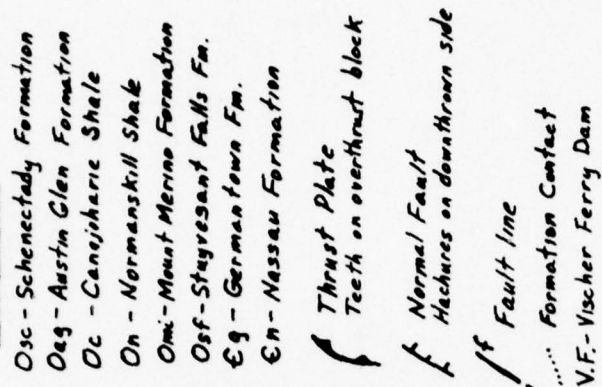 Osc - Schenectady Formation
Oag - Austin Glen Formation
Oc - Canajoharie Shale
On - Normanskill Shale
Omi - Mount Merino Formation
Osf - Stuyvesant Falls Fm.
Єg - Germantown Fm.
Єn - Nassau Formation
Thrust Plate
Teeth on overthrust block
Normal Fault
Hachures on downthrown side
f Fault line
...... Formation Contact
V.F. - Vischer Ferry Dam